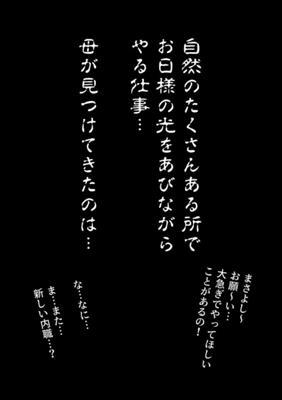 自然のたくさんある所で
お日様の光をあびながら
やる仕事…
母が見つけてきたのは…
まさよし～
お願～い…
大急ぎでやってほしい
ことがあるの！
な…なに…
ま…また…
新しい内職…？